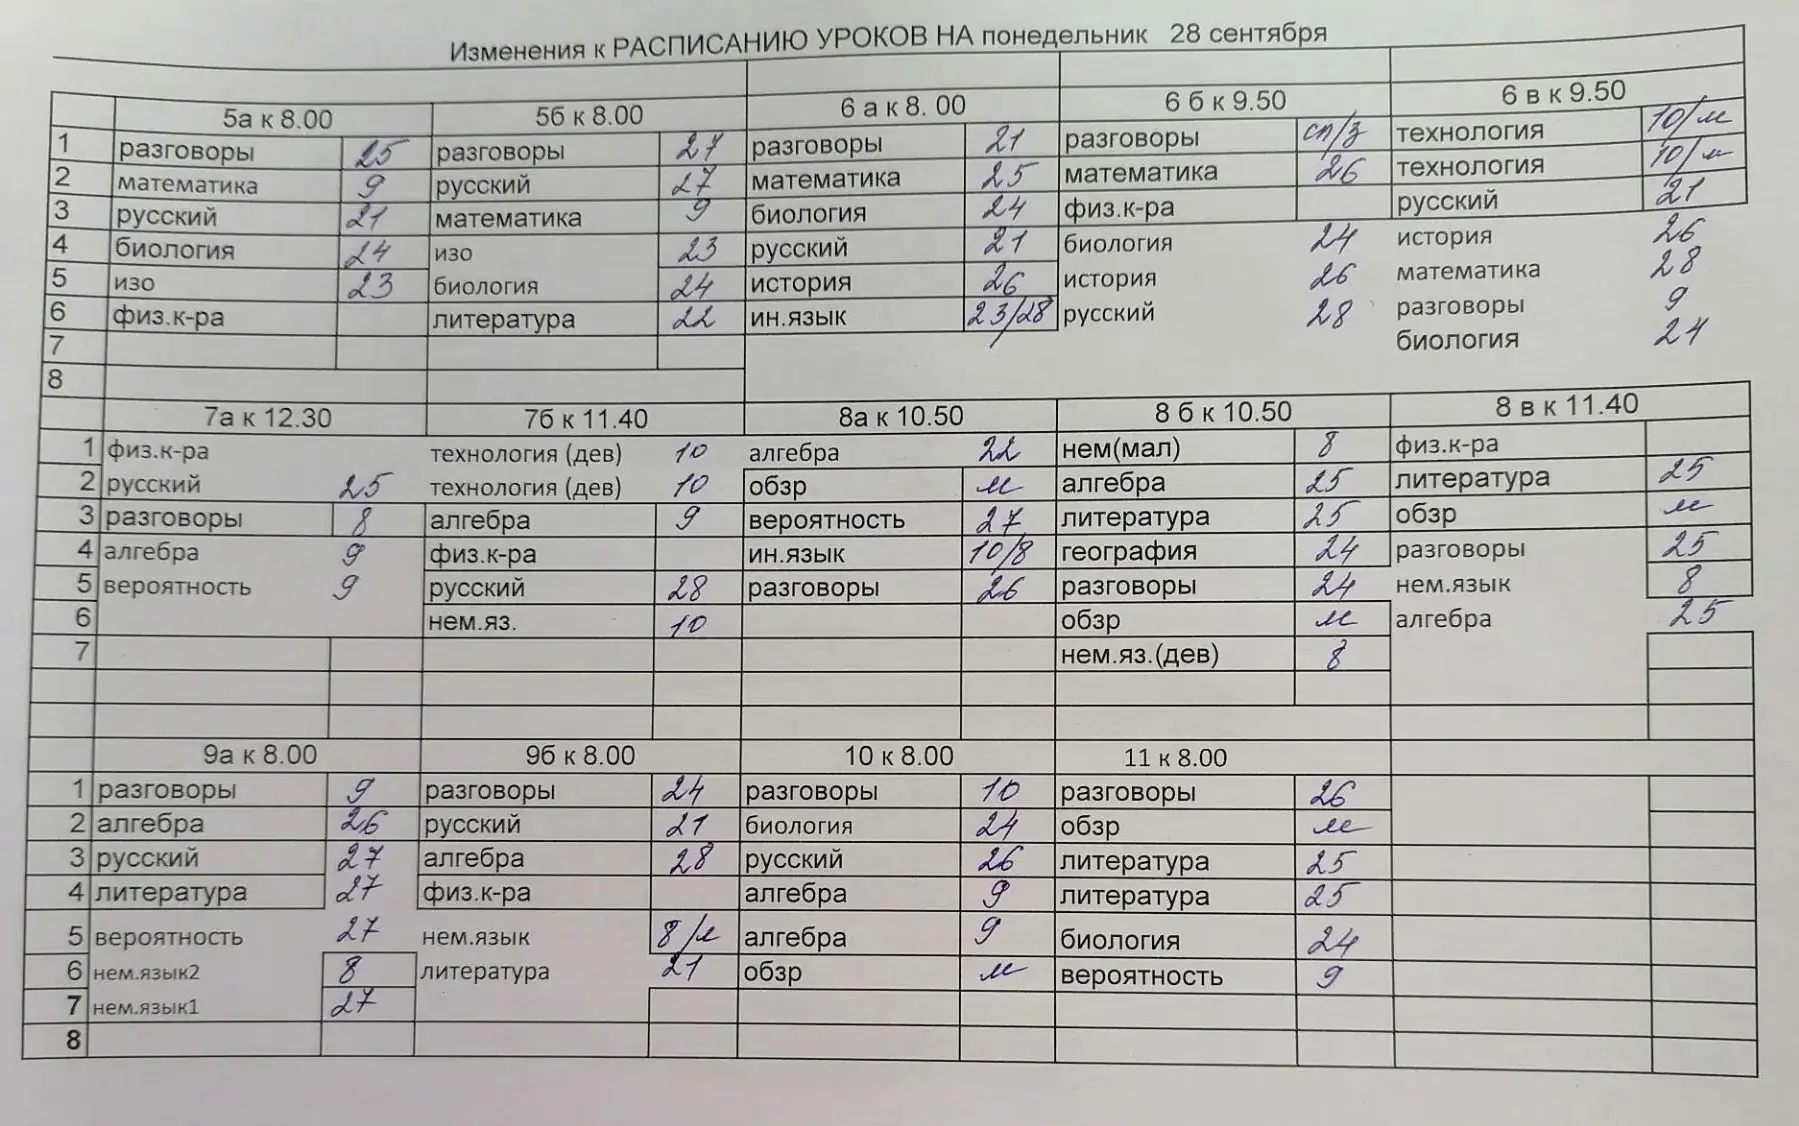 Изменения к РАСПИСАНИЮ УРОКОВ НА понедельник 28 сентября
5а к 8.00 5б к 8.00 6 а к 8. 00 6 б к 9.50 6 в к 9.50
1 разговоры 25 разговоры 27 разговоры 21 разговоры сп/з технология 10/м
2 математика 9 русский 27 математика 25 математика 26 технология 10/м
3 русский 21 математика 9 биология 24 физ.к-ра русский 21
4 биология 24 изо 23 русский 21 биология 24 история 26
5 изо 23 биология 24 история 26 история 26 математика 28
6 физ.к-ра литература 22 ин.язык 23/28 русский 28 разговоры 9
7 биология 24
8
7а к 12.30 7б к 11.40 8а к 10.50 8 б к 10.50 8 в к 11.40
1 физ.к-ра технология (дев) 10 алгебра 22 нем(мал) 8 физ.к-ра
2 русский 25 технология (дев) 10 обзр м алгебра 25 литература 25
3 разговоры 8 алгебра 9 вероятность 27 литература 25 обзр м
4 алгебра 9 физ.к-ра ин.язык 10/8 география 24 разговоры 25
5 вероятность 9 русский 28 разговоры 26 разговоры 24 нем.язык 8
6 нем.яз. 10 обзр м алгебра 25
7 нем.яз.(дев) 8
9а к 8.00 9б к 8.00 10 к 8.00 11 к 8.00
1 разговоры 9 разговоры 24 разговоры 10 разговоры 26
2 алгебра 26 русский 21 биология 24 обзр м
3 русский 27 алгебра 28 русский 26 литература 25
4 литература 27 физ.к-ра алгебра 9 литература 25
5 вероятность 27 нем.язык 8/м алгебра 9 биология 24
6 нем.язык2 8 литература 21 обзр м вероятность 9
7 нем.язык1 27
8